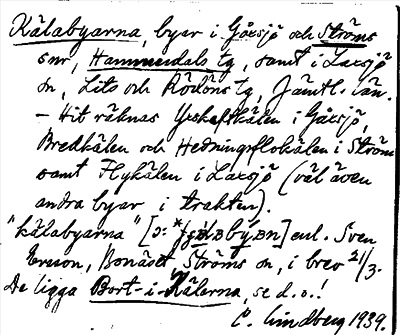 Kälabyarna, byar i Gåxsjö och Ströms
snr, Hammerdals tg, samt i Laxsjö
sn, Lits och Rödöns tg, Jämtl. län.
– Hit räknas Yxskaftkälen i Gåxsjö,
Bredkälen och Hedningsflokälen i Ström
samt Flykälen i Laxsjö (väl även
andra byar i trakten).
"kälabyarna" enl. Sven
Bonäset Ströms sn, i brev 21/3.
De ligga Bort-i-Kälarna, se d.o.!
C. Lindberg 1939.